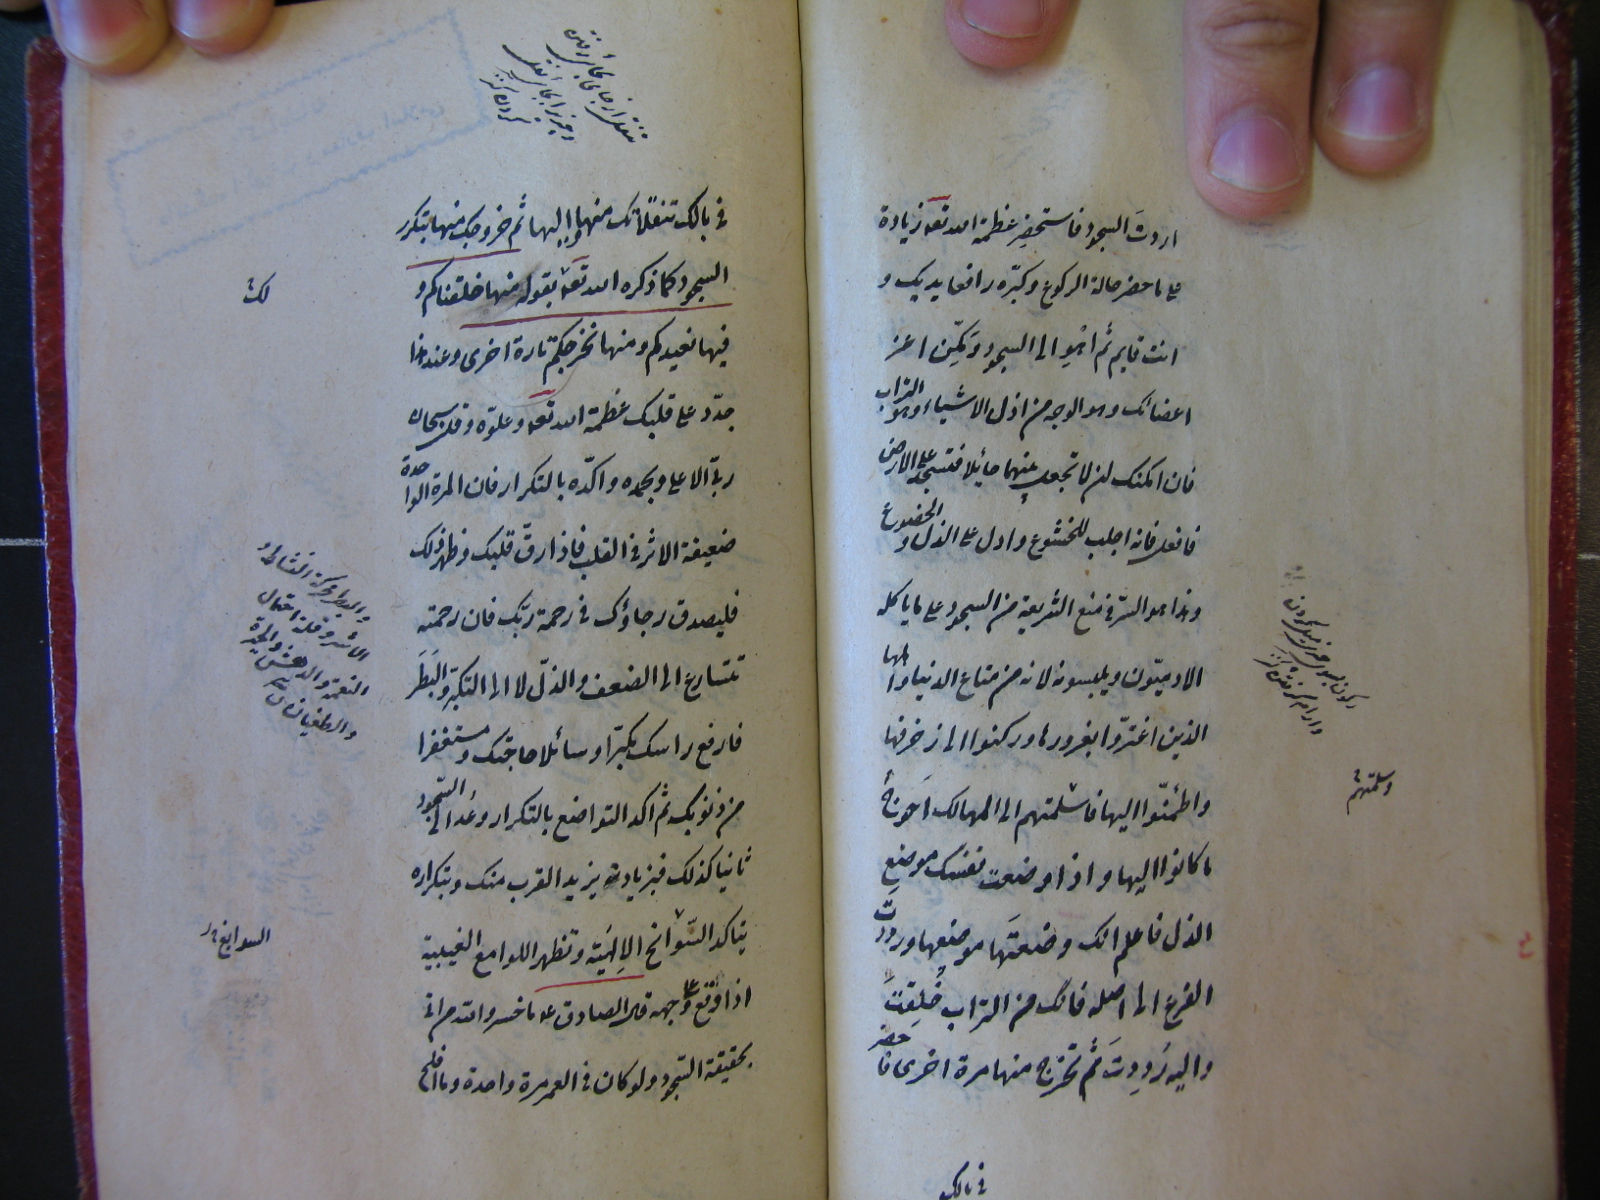 اردتَ السجود فاستحضر عظمة الله تعه زيادة
على ما حضر حالة الركوع وكبّره رافعا يديك و
انت قايم ثم اهْوِ الى السجود ومَكّن اعز
اعضائك وهو الوجه من اذل الاشياء وهو التراب
فان امكنك ان لا تجعل بينهما حائلا فتسجد على الارض
فافعل فانه اجلب للخشوع وادل على الذل و الخضوع
وهذا هو السرّ في منع الشريعة من السجود على ما ياكله
الادميّون ويلبسونه لانه من متاع الدنيا واهلها
الذين اغترّوا بغرورها وركنوا الى زخرفها
واطمئنّوا اليها فاسلمتهم الى المهالك اَحوجَ
ما كانوا اليها واذا وضعت نفسك موضع
الذل فاعلم انك وضعتَها موضعها ورددت
الفرع الى اصله فانك من التراب خُلِقتَ
واليه رُدِدتَ ثم تخرج منها مرة اخرى فاحضر
في بالك
وسلمتهم
في بالك تنقلاتك منها واليها ثم خروجك منها بتكرر
السجود كما ذكره الله تعه بقوله منها خلقناكم و
فيها نعيدكم ومنها نخرجكم تارة اخرى وعند هذا
جدّد على قلبك عظمة الله تعه وعلوّه وقل سبحان
ربى الاعلى وبحمده واكدّه بالتكرار فان المرة الواحدة
ضعيفة الاثر في القلب فاذا رقّ قلبك وظهر لك
فليصدق رجاؤك في رحمة ربك فان رحمته
تتسارع الى الضعف والذلّ لا الى التكبّر والبَطَر
فارفع راسك مكبّرا وسائلا حاجتك و مستغفرا
من ذنوبك ثم اكد التواضع بالتكرار وعُد الى السجود
ثانيا كذلك فبزيادته يزيد القرب منك وبتكراره
يتاكد السّوانح الالهَيّة وتظهر اللوامع الغيبية
اذا وقع على وجهه قال الصادق عه ما خسر والله من اتى
بحقيقة السجود ولو كان في العمر مرة واحدة وما افلح
لك
والبطر محركة النشاط و
الأشر وقلة احتمال
النعمة والدهش والحيرة
والطغيان ق
السوابغ